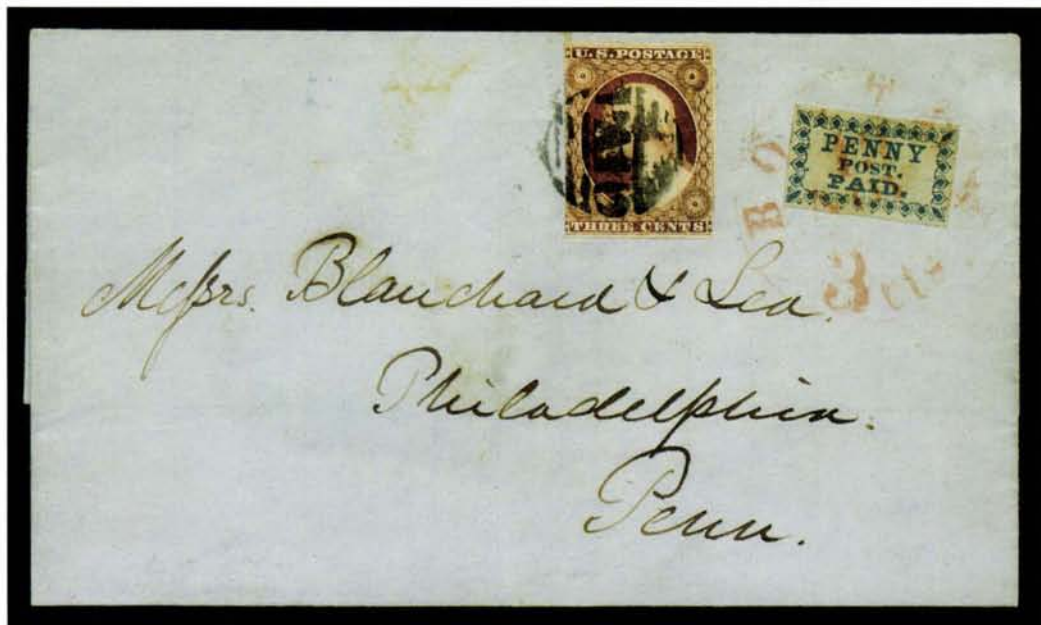 U.S. POSTAGE
PAID
THREE CENTS
PENNY
POST.
PAID.
BO
3 cts
Messrs. Blanchard & Lea.
Philadelphia.
Penn.